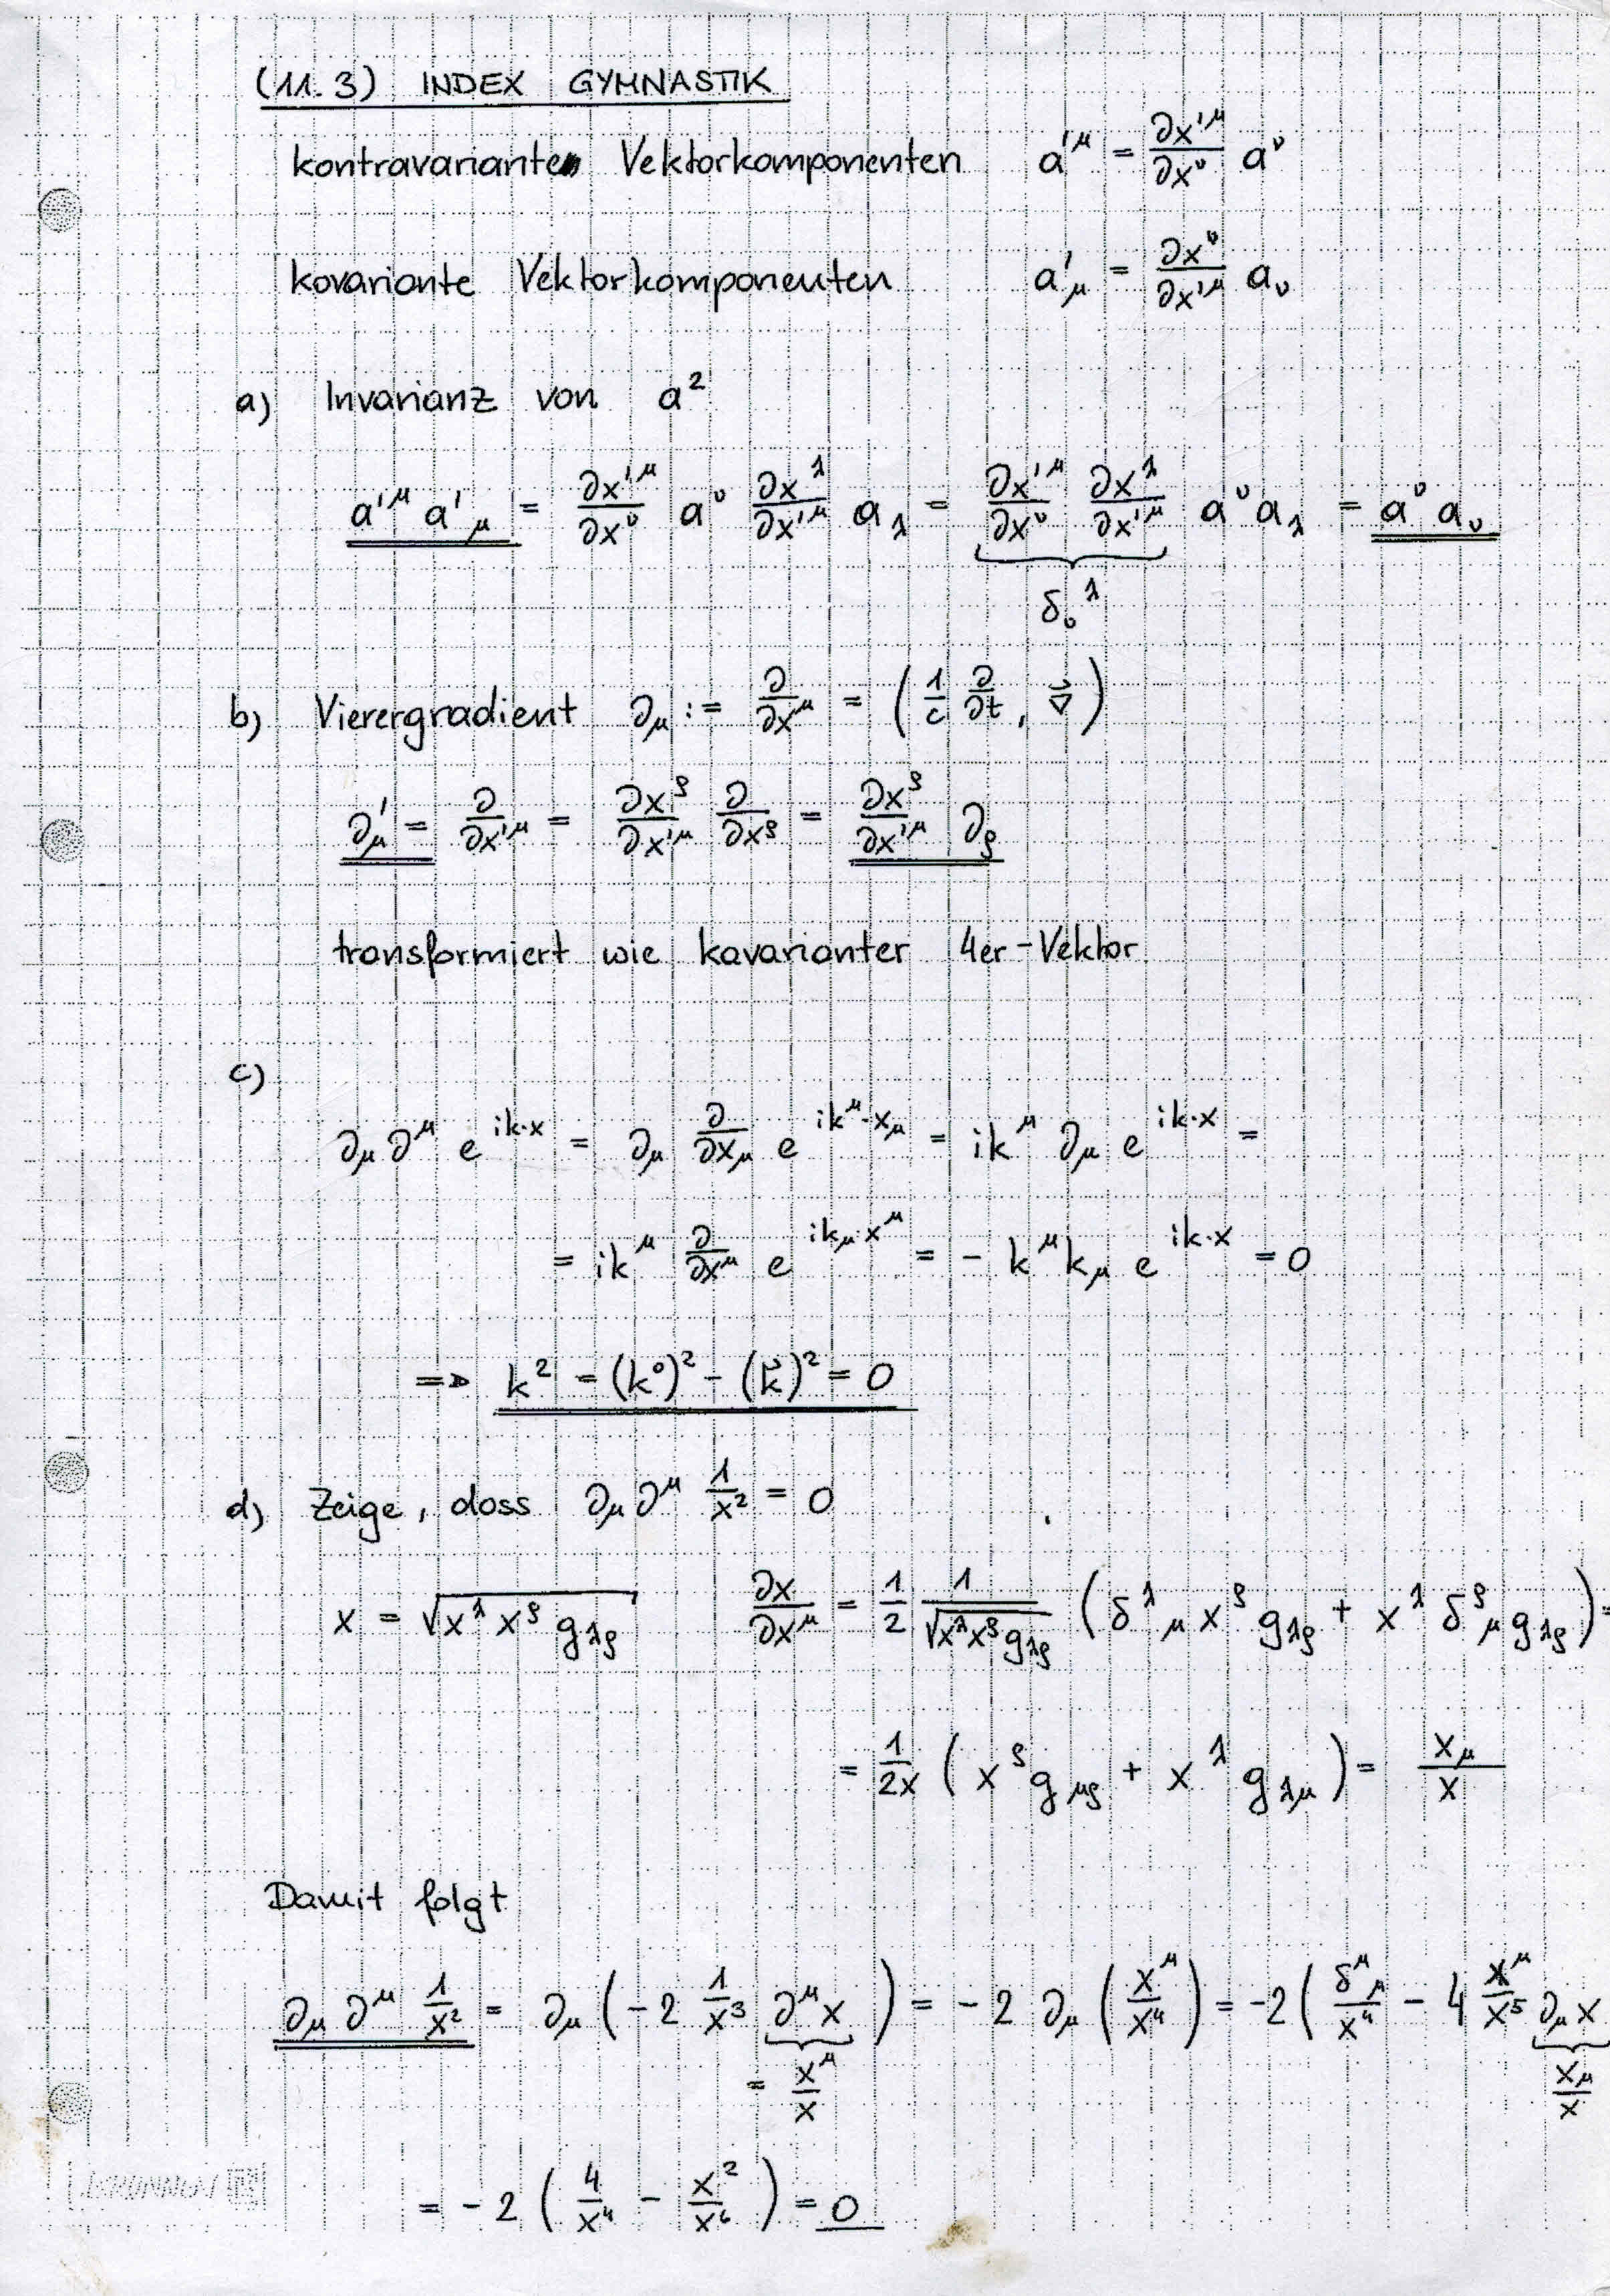 (11.3) INDEX GYMNASTIK
kontravariante Vektorkomponenten a'^μ = ∂x'^μ/∂x^ν a^ν
kovariante Vektorkomponenten a'_μ = ∂x^ν/∂x'^μ a_ν
a) Invarianz von a²
a'^μ a'_μ = ∂x'^μ/∂x^ν a^ν ∂x^λ/∂x'^μ a_λ = ∂x'^μ/∂x^ν ∂x^λ/∂x'^μ a^ν a_λ = a^ν a_ν
δ_ν^λ
b) Vierergradient ∂_μ := ∂/∂x^μ = (1/c ∂/∂t, ∇⃗)
∂'_μ = ∂/∂x'^μ = ∂x^ρ/∂x'^μ ∂/∂x^ρ = ∂x^ρ/∂x'^μ ∂_ρ
transformiert wie kovarianter 4er-Vektor
c)
∂_μ ∂^μ e^{ik·x} = ∂_μ ∂/∂x_μ e^{ik^μ·x_μ} = ik^μ ∂_μ e^{ik·x} =
= ik^μ ∂/∂x^μ e^{ik_μ·x^μ} = - k^μ k_μ e^{ik·x} = 0
=> k² = (k⁰)² - (k⃗)² = 0
d) Zeige, dass ∂_μ ∂^μ 1/x² = 0
x = √(x^λ x^ρ g_λρ) ∂x/∂x^μ = 1/2 1/√(x^λ x^ρ g_λρ) (δ^λ_μ x^ρ g_λρ + x^λ δ^ρ_μ g_λρ) =
= 1/2x (x^ρ g_μρ + x^λ g_λμ) = x_μ/x
Damit folgt
∂_μ ∂^μ 1/x² = ∂_μ (-2 1/x³ ∂^μ x) = -2 ∂_μ (x^μ/x⁴) = -2 (δ^μ_μ/x⁴ - 4 x^μ/x⁵ ∂_μ x
= x^μ/x x_μ/x
= -2 (4/x⁴ - x²/x⁶) = 0
BRUNNEN